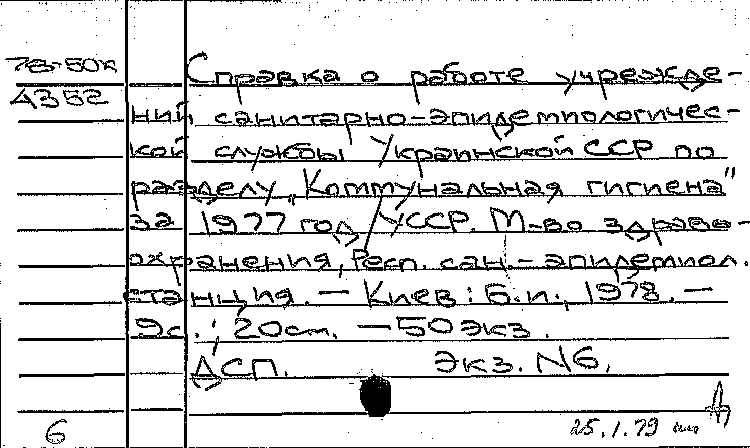 78-50к
4352
Справка о работе учрежде-
ний санитарно-эпидемиологичес-
кой службы Украинской ССР по
разделу „Коммунальная гигиена"
за 1977 год / УССР. М-во здраво-
охранения, Респ. сан.-эпидемиол.
станция. — Киев: Б.и., 1978. —
9с.; 20см. — 50 экз.
ДСП. Экз. N6.
6
25.1.79